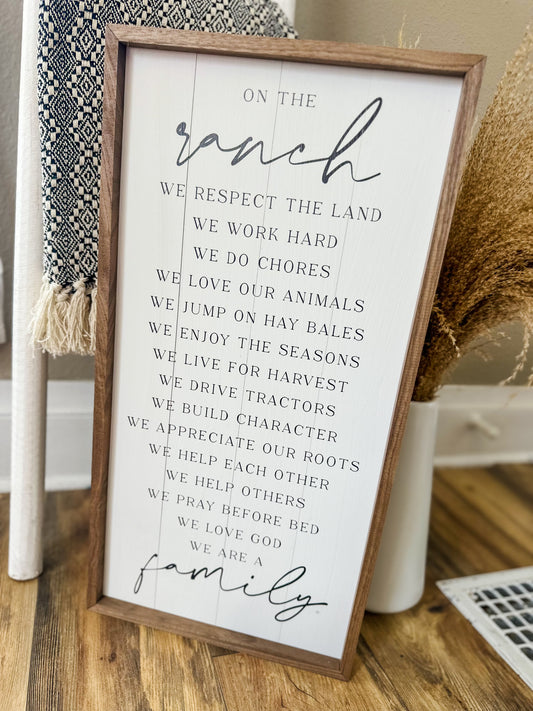 ON THE
ranch
WE RESPECT THE LAND
WE WORK HARD
WE DO CHORES
WE LOVE OUR ANIMALS
WE JUMP ON HAY BALES
WE ENJOY THE SEASONS
WE LIVE FOR HARVEST
WE DRIVE TRACTORS
WE BUILD CHARACTER
WE APPRECIATE OUR ROOTS
WE HELP EACH OTHER
WE HELP OTHERS
WE PRAY BEFORE BED
WE LOVE GOD
WE ARE A
family